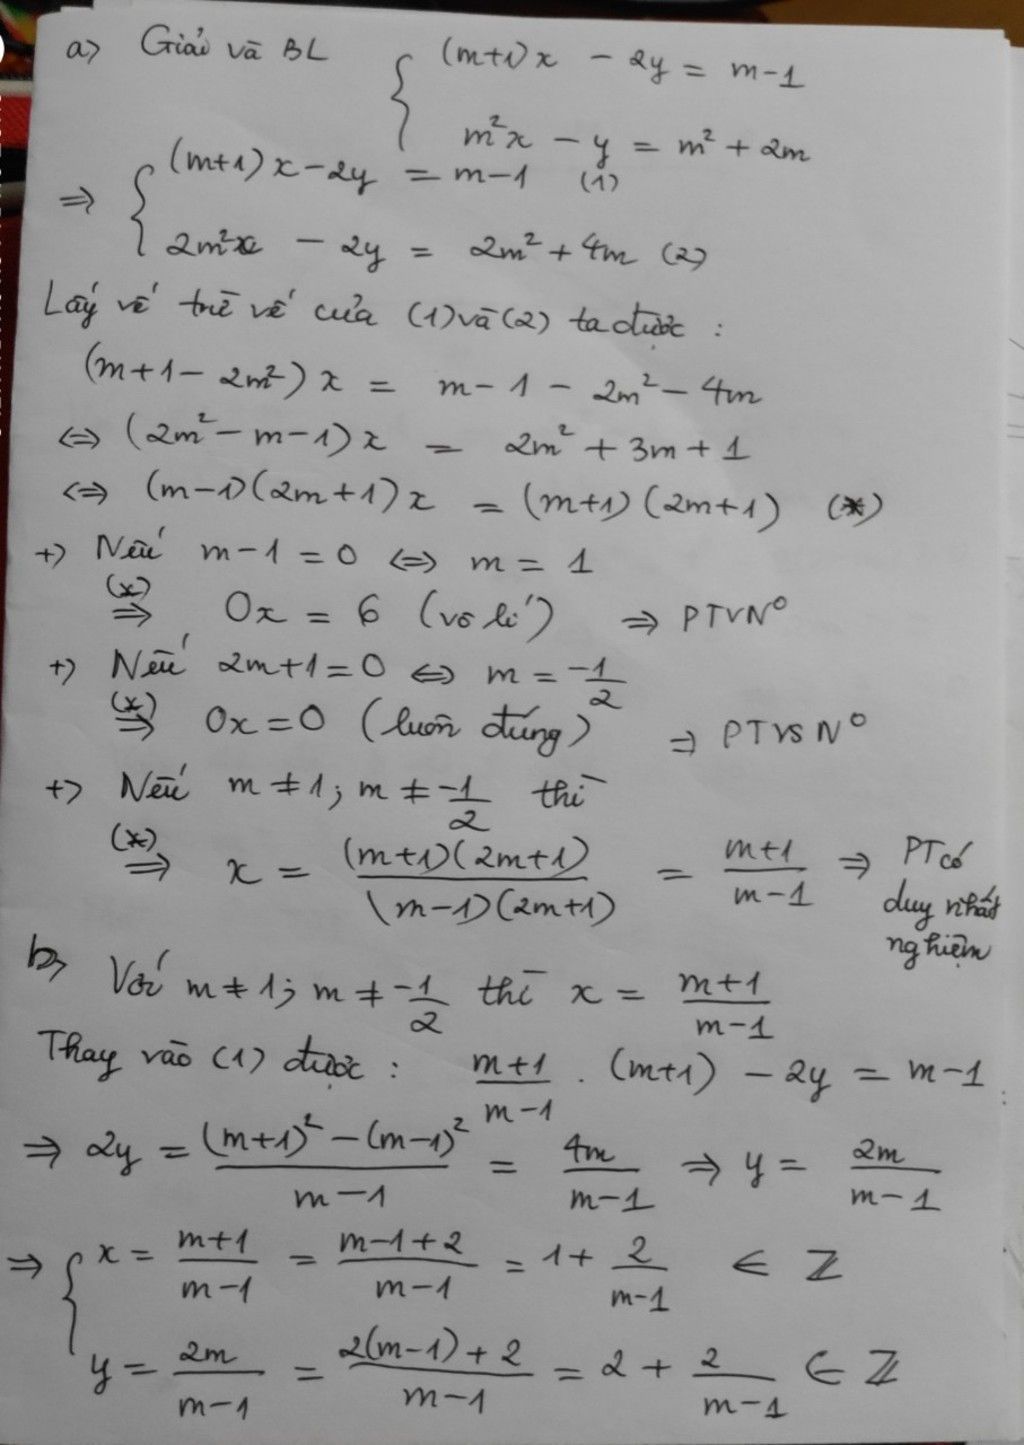 a) Giải và BL { (m+1)x - 2y = m-1
m²x - y = m² + 2m
⇒ { (m+1)x - 2y = m-1 (1)
2m²x - 2y = 2m² + 4m (2)
Lấy vế trừ vế của (1) và (2) ta được :
(m+1-2m²)x = m-1-2m²-4m
⇔ (2m²-m-1)x = 2m² + 3m + 1
⇔ (m-1)(2m+1)x = (m+1)(2m+1) (*)
+) Nếu m-1 = 0 ⇔ m = 1
(*) ⇒ 0x = 6 (vô lí) ⇒ PTVN⁰
+) Nếu 2m+1=0 ⇔ m = -1/2
(*) ⇒ 0x=0 (luôn đúng) ⇒ PTVSN⁰
+) Nếu m ≠ 1; m ≠ -1/2 thì
(*) ⇒ x = (m+1)(2m+1)/(m-1)(2m+1) = m+1/m-1 ⇒ PT có
duy nhất
nghiệm
b) Với m ≠ 1; m ≠ -1/2 thì x = m+1/m-1
Thay vào (1) được : m+1/m-1 . (m+1) - 2y = m-1
⇒ 2y = (m+1)² - (m-1)²/m-1 = 4m/m-1 ⇒ y = 2m/m-1
⇒ { x = m+1/m-1 = m-1+2/m-1 = 1 + 2/m-1 ∈ ℤ
y = 2m/m-1 = 2(m-1)+2/m-1 = 2 + 2/m-1 ∈ ℤ